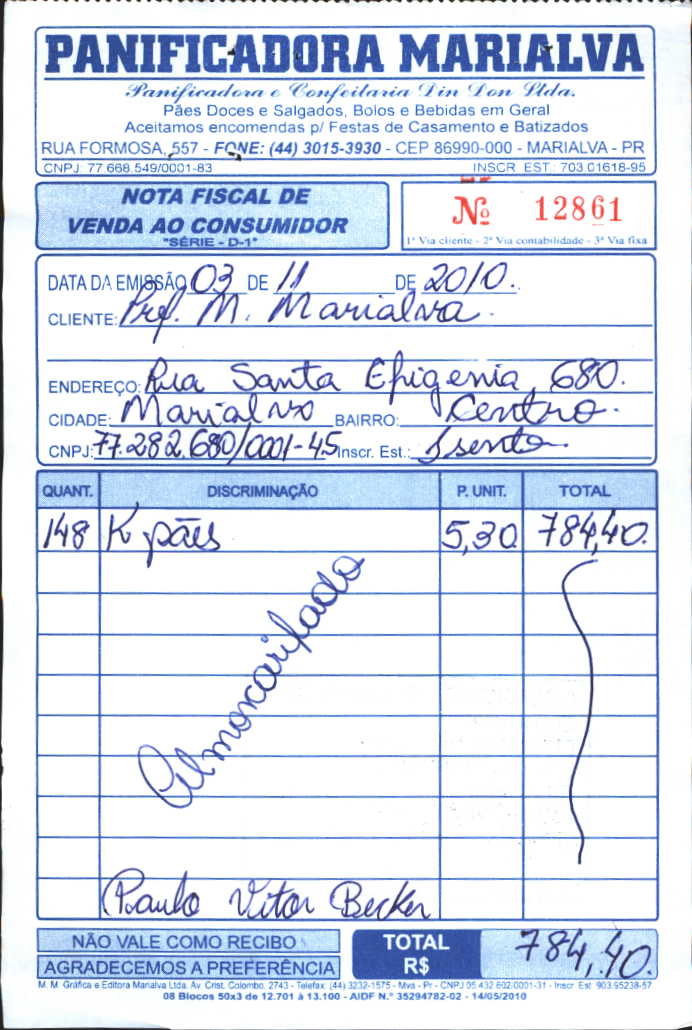 PANIFICADORA MARIALVA
Panificadora e Confeitaria Din Don Ltda.
Pães Doces e Salgados, Bolos e Bebidas em Geral
Aceitamos encomendas p/ Festas de Casamento e Batizados
RUA FORMOSA, 557 - FONE: (44) 3015-3930 - CEP 86990-000 - MARIALVA - PR
CNPJ: 77.668.549/0001-83 INSCR. EST.: 703.01618-95
NOTA FISCAL DE
VENDA AO CONSUMIDOR
"SÉRIE - D-1"
Nº 12861
1ª Via cliente - 2ª Via contabilidade - 3ª Via fixa
DATA DA EMISSÃO 03 DE 11 DE 2010.
CLIENTE: Pref. M. Marialva.
ENDEREÇO: Rua Santa Efigenia, 680.
CIDADE: Marialva BAIRRO: Centro.
CNPJ: 77.282.680/0001-45 Inscr. Est.: Isento.
QUANT. DISCRIMINAÇÃO P. UNIT. TOTAL
148 K pães 5,30 784,40.
Almoxarifado
Paulo Vitor Becker
NÃO VALE COMO RECIBO
AGRADECEMOS A PREFERÊNCIA
TOTAL R$ 784,40.
M. M. Gráfica e Editora Marialva Ltda. Av. Crist. Colombo, 2743 - Telefax: (44) 3232-1575 - Mva - Pr - CNPJ 05.432.602/0001-31 - Inscr. Est. 903.95238-57
08 Blocos 50x3 de 12.701 à 13.100 - AIDF N.º 35294782-02 - 14/05/2010